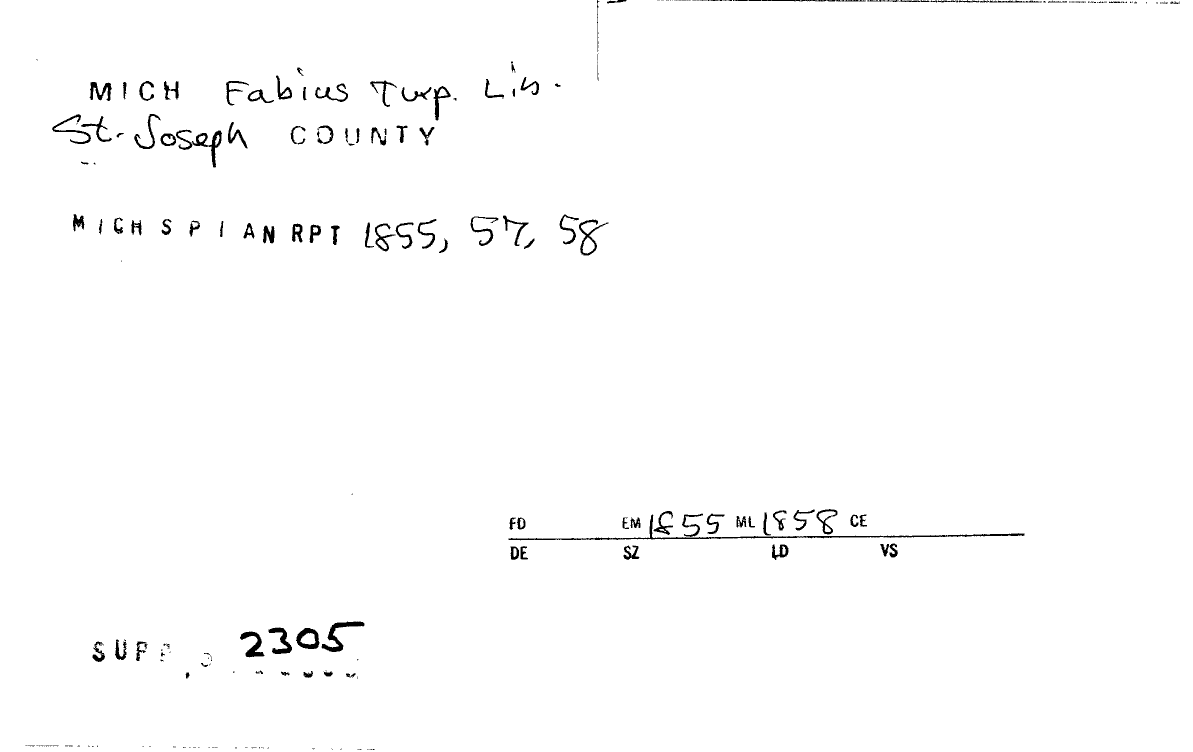 MICH Fabius Twp. Lib.
St. Joseph COUNTY
MICH S P I AN RPT 1855, 57, 58
FD EM 1855 ML 1858 CE
DE SZ LD VS
SUPP 2305